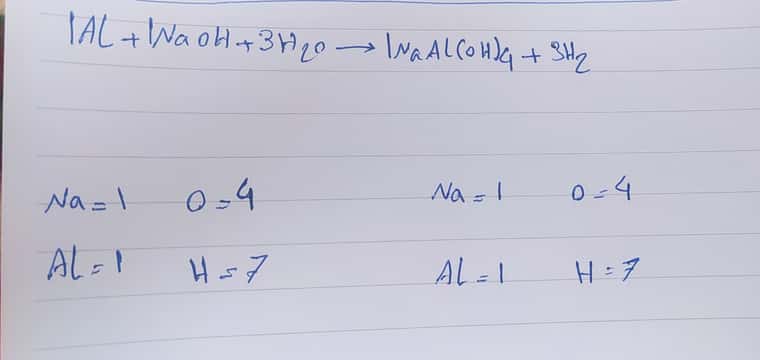 1Al + 1NaOH + 3H₂O → 1NaAl(OH)₄ + 3H₂
Na = 1 O = 4 Na = 1 O = 4
Al = 1 H = 7 Al = 1 H = 7